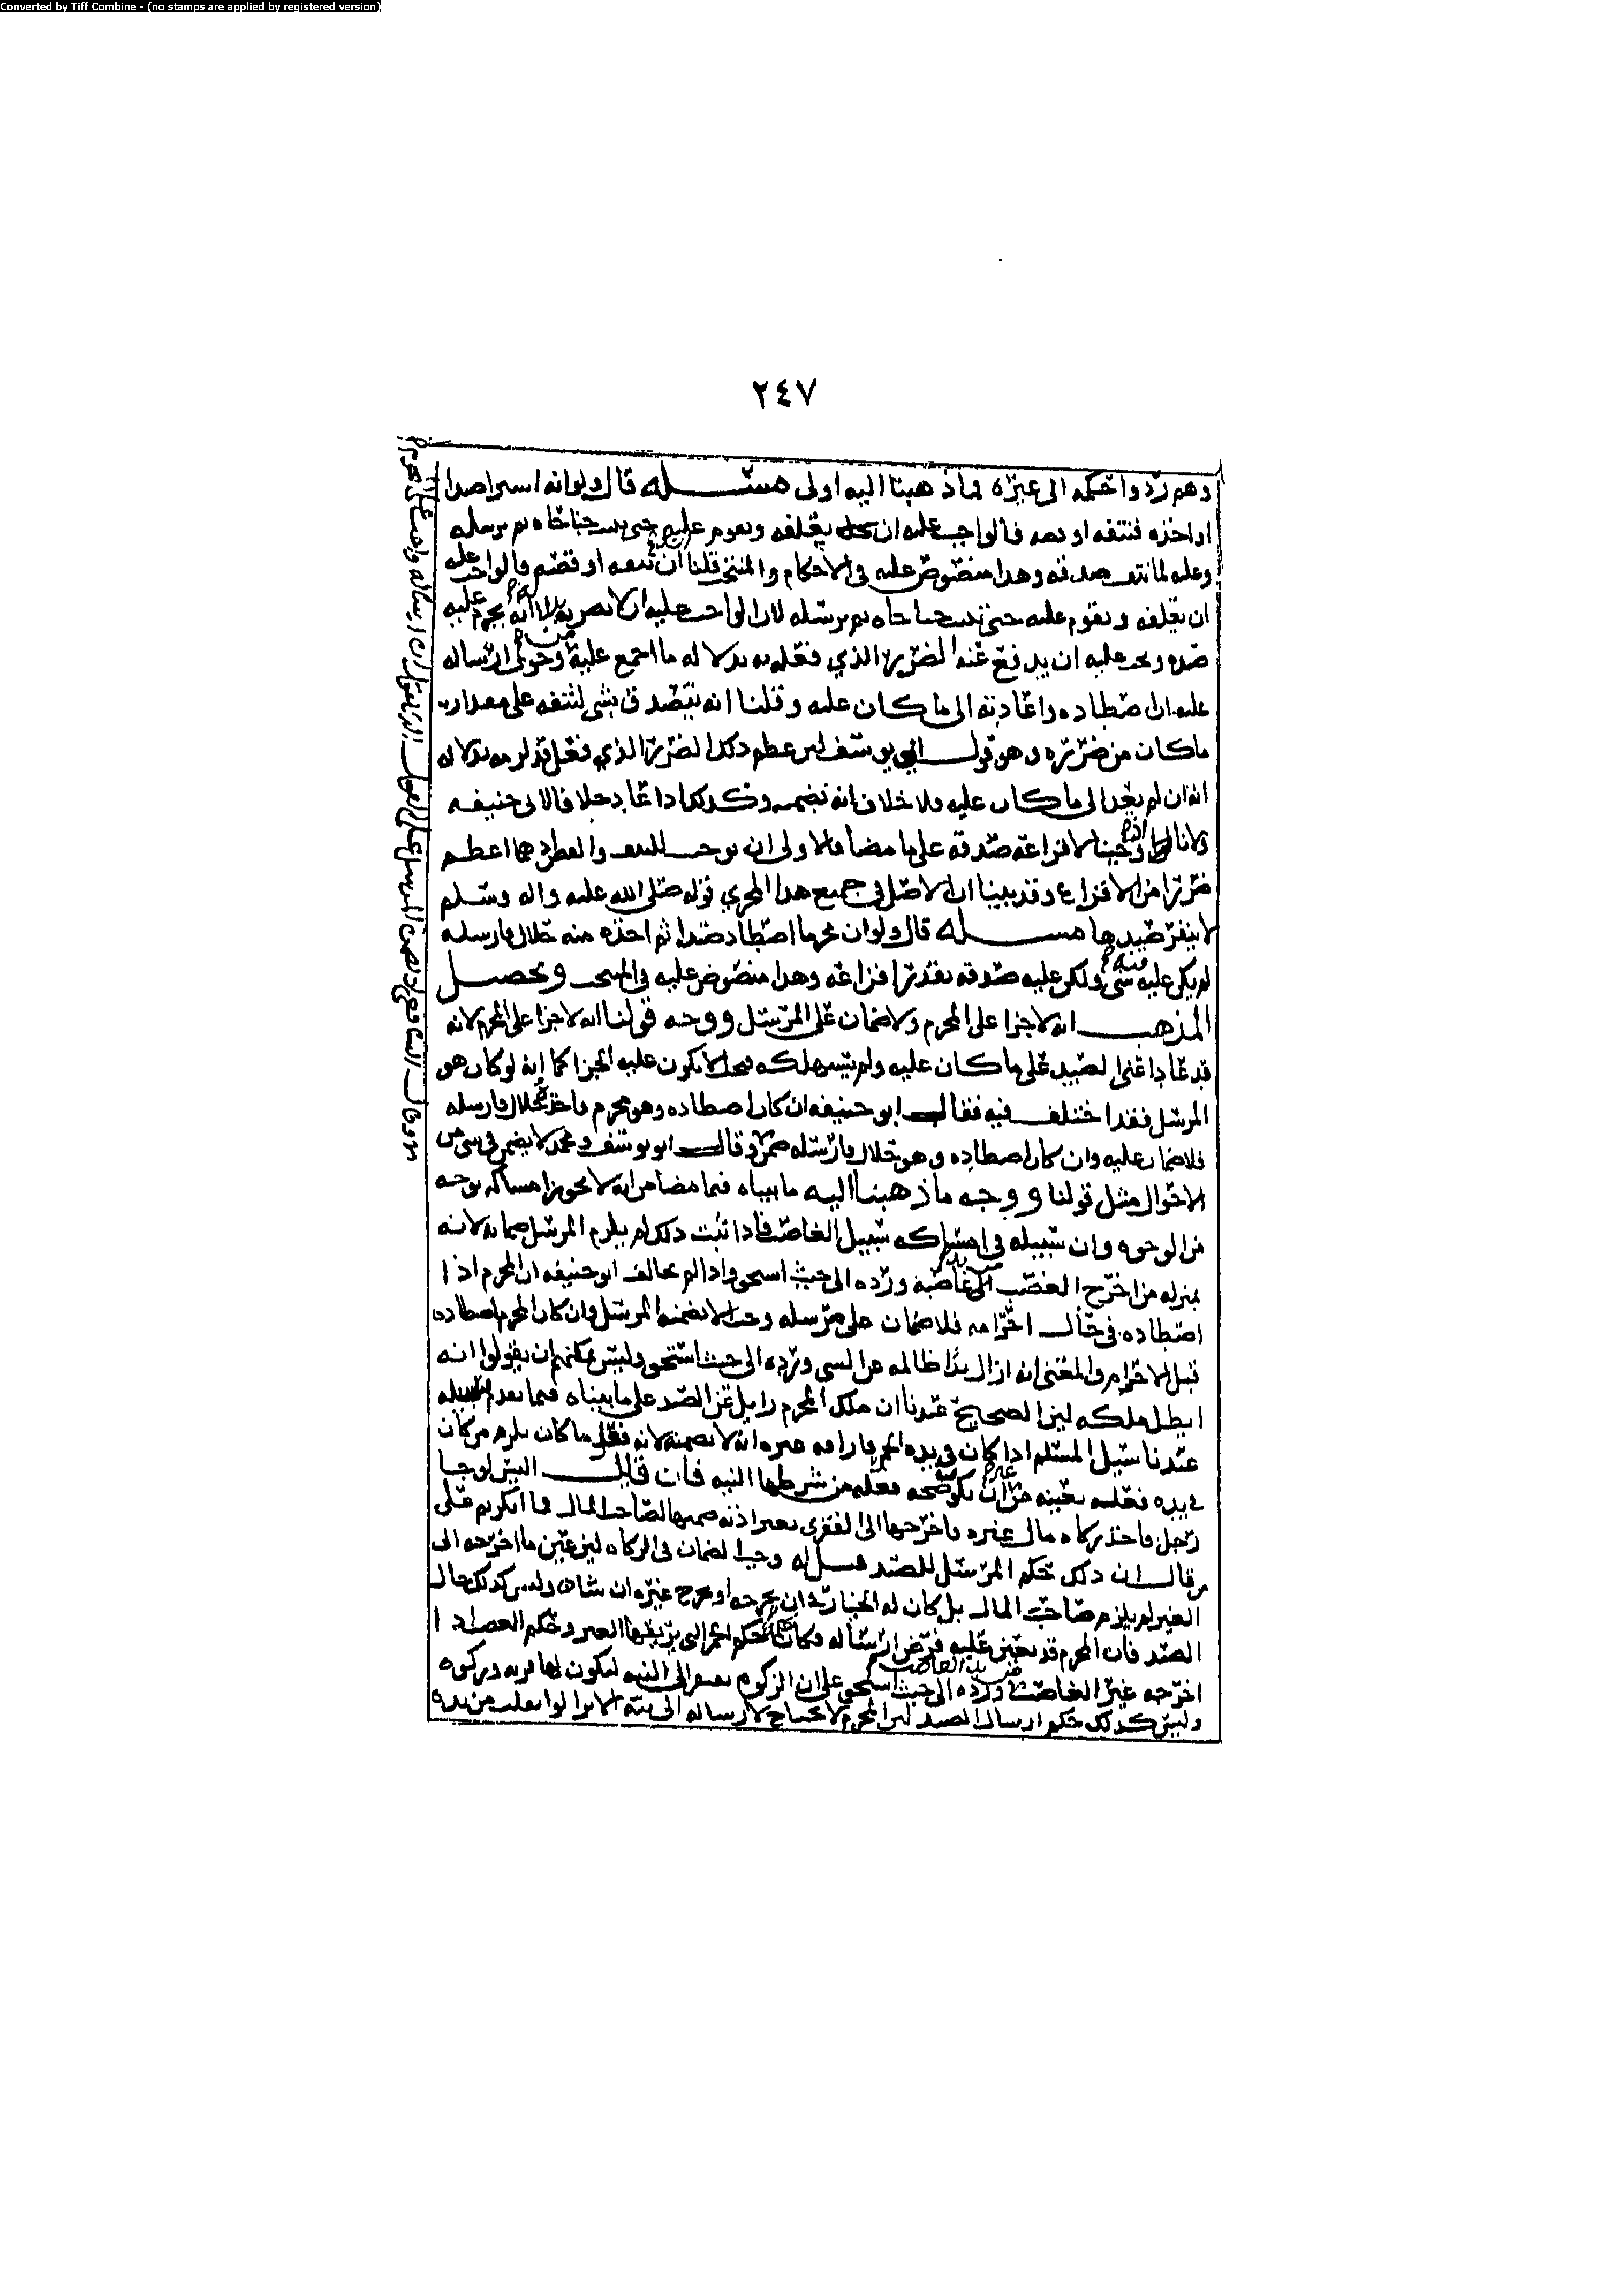 Converted by Tiff Combine - (no stamps are applied by registered version)
٢٤٧
وهم ردوا حكمه الى غيره فما ذهبنا اليه اولى مسئله قال ولوانه اسرا صدا
او اخذه فنتفه او قصه فالواجب عليه ان يعلفه ويقوم عليه حتى ينبت جناحاه ثم يرسله
وعليه لما نتف صدقه وهذا منصوص عليه في الاحكام والمنتخب قلنا ان نتفه او قصه فالواجب عليه
ان يعلفه ويقوم عليه حتى ينبت جناحاه ثم يرسله لان الواجب عليه ان لا يضر به لانه يحرم عليه
صيده ويجب عليه ان يدفع عنه الضرر الذي فعله به بدلاله ما اجمع عليه من وجوب ارساله
عليه ان اصطاده واعادته الى ما كان عليه وقلنا انه يتصدق بشي لنتفه على مقدار
ما كان من ضرره وهو قول ابي يوسف لان عظم ذلك الضرر الذي فعل قد لزمه بدلاله
انه ان لم يعد الى ما كان عليه فلا خلاف انه يضمنه وكذلك اذا عاد خلافا لابي حنيفه
ولانا اوجبنا لافزاعه صدقه على ما مضا فالاولى ان يوجب للنتف والقص وهما اعظم
ضررا من الافزاع وقد بينا ان الاصل في جميع هذا المجرى قوله صلى الله عليه واله وسلم
لا ينفر صيدها مسئله قال ولو ان محرما اصطاد صيدا ثم اخذه منه حلال فارسله
لم يكن عليه فيه شي ولكن عليه صدقه بقدر افزاعه وهذا منصوص عليه في المنتخب وتحصيل
المذهب انه لا جزا على المحرم ولا ضمان على المرسل ووجه قولنا انه لا جزا على المحرم لانه
قد عاد اعني الصيد على ما كان عليه ولم يستهلكه فيجب الا يكون عليه الجزا كما انه لو كان هو
المرسل فقد اختلف فيه فقال ابو حنيفه ان كان اصطاده وهو محرم فاخذه حلال فارسله
فلا ضمان عليه وان كان اصطاده وهو حلال فارسله ضمن وقال ابو يوسف ومحمد لا يضمن في شي من
الاحوال مثل قولنا ووجه ما ذهبنا اليه ما بيناه فيما مضا من انه لا يجوز امساكه بوجه
من الوجوه وان سبيله في امساكه سبيل الغاصب فاذا ثبت ذلك لم يلزم المرسل ضمانه لانه
بمنزله من اخرج الغصب من يد غاصبه ورده الى حيث استحق واذا لم يخالف ابو حنيفه ان المحرم اذا
اصطاده في حال احرامه فلا ضمان على مرسله وجب الا يضمنه المرسل وان كان المحرم اصطاده
قبل الاحرام والمعنى انه ازال يدا ظالمه عن الشي ورده الى حيث استحق وليس يمكنهم ان يقولوا انه
ابطل ملكه لان الصحيح عندنا ان ملك المحرم زايل عن الصيد على ما بيناه فيما تقدم
عندنا سبيل المسلم اذا كان في يده الخمر فاراقه غيره انه لا يضمنه لانه فعل ما كان يلزم من كان
في يده فعله بعينه من غير ان يكون صحه فعله من شرطها النيه فان قال اليس لو جا
رجل فاخذ زكاه مال غيره فاخرجها الى الفقرى بغير اذنه ضمنها لصاحب المال فما انكرتم على
من قال ان ذلك حكم المرسل للصيد قيل له وجب الضمان في الزكاه لان عين ما اخرجه الى
الغير لم يلزم صاحب المال بل كان له الخيار في ان يخرجه او يخرج غيره ان شا وليس كذلك حال
الصيد فان المحرم قد تعين عليه فرض ارساله فكان حكمه حكم الخمر التي يريقها الغير وحكم الغصب اذا
اخرجه غير الغاصب من يد الغاصب ورده الى حيث استحق على ان الزكوه تفتقر الى النيه لتكون لها قربه وزكوه
وليس كذلك حكم ارسال الصيد لان المحرم لا يحتاج لارساله الى نيه الا ترا لو انفلت من يده